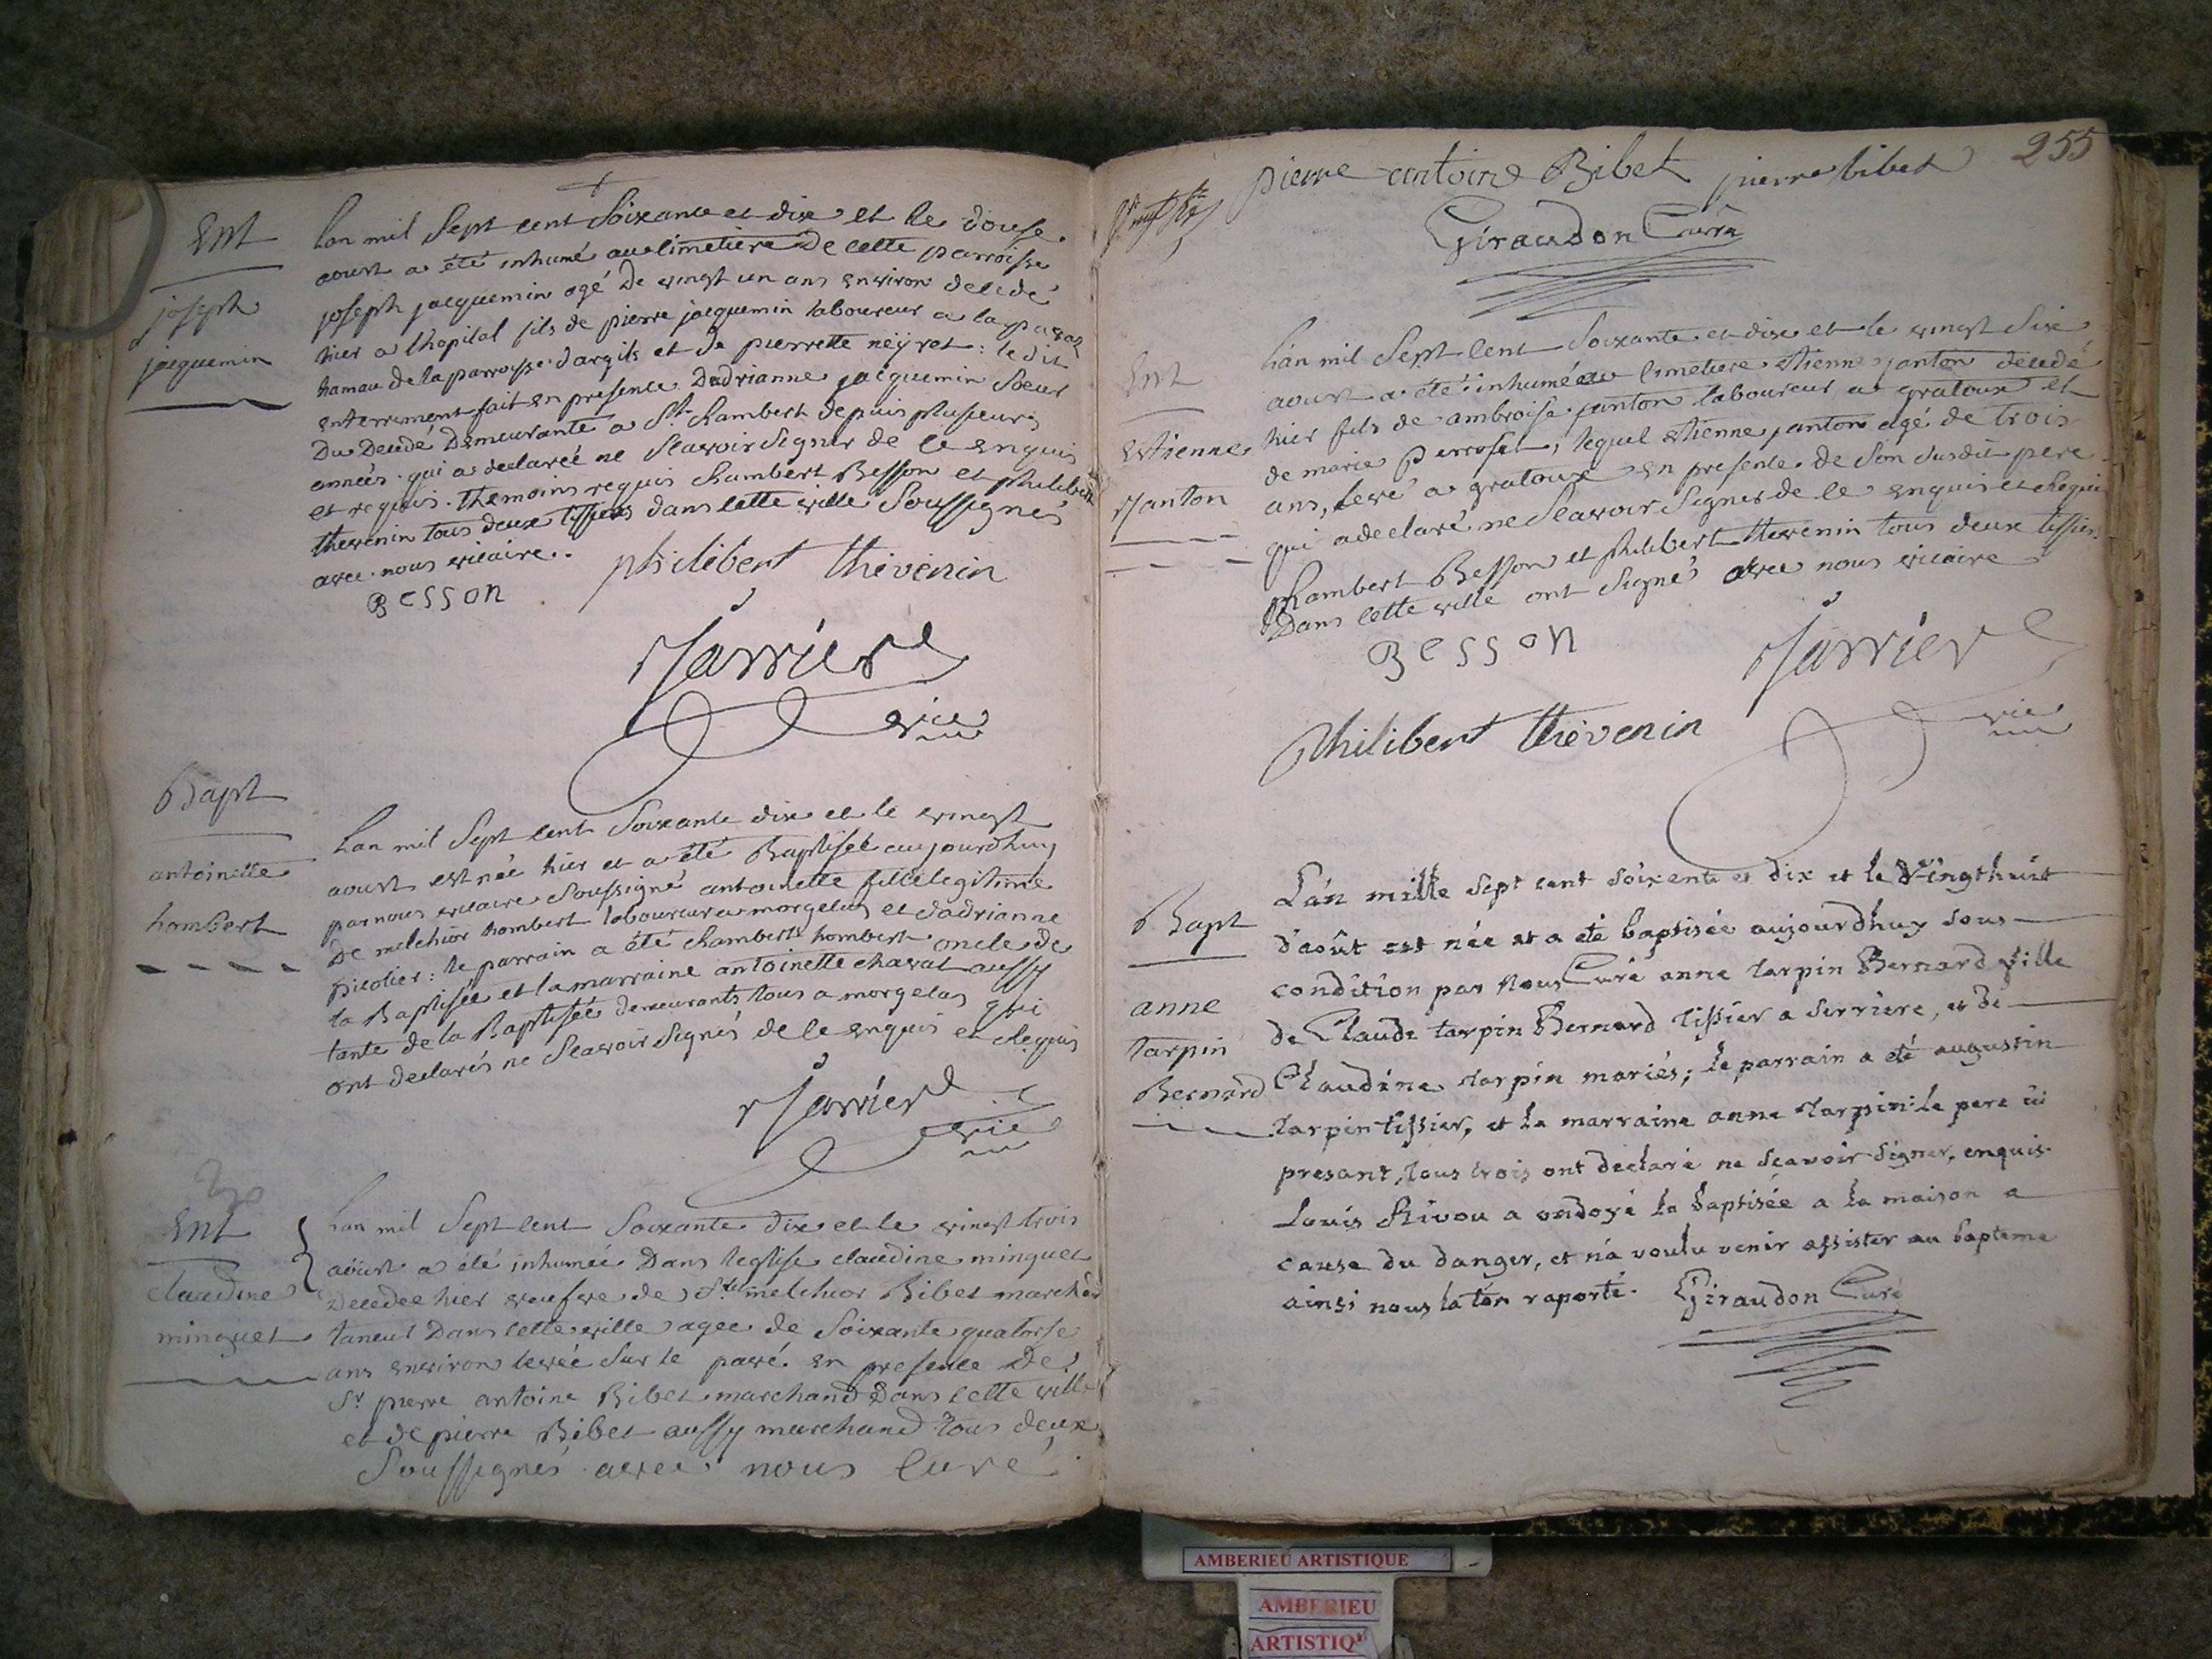 Ent
joseph
jacquemin
Lan mil Sept cent Soixante et dix et le douse
aoust a été inhumé au Cimetiere De cette parroisse
joseph jacquemin agé De vingt un ans environ decedé
hier a lhopital fils de pierre jacquemin laboureur a la
hamau de la parroisse dargils et de pierrette neÿret : le dit
enterrement fait en presence Dadrianne jacquemin Soeur
Du Decedé Demeurante a St. Rambert depuis plusieurs
années qui a declareé ne Scavoir Signer de ce enquis
et requis. themoins requis Rambert Besson et philibert
thevenin tous deux tissiers dans cette ville Soussignés
avec nous vicaire..
Besson philibert thevenin
Jarrier
vic
Bapt
antoinette
hombert
Lan mil Sept cent Soixante dix et le vingt
aoust est née hier et a été Baptiseé aujourdhuy
par nous vicaire Soussigné antoinette fille legitime
De melchior hombert laboureur a morgelas et dadrianne
picolier : le parrain a été Rambert hombert oncle de
la Baptisée et la marraine antoinette chavat aussy
tante de la Baptisée demeurants tous a morgelas qui
ont declarés ne Scavoir Signés de ce enquis et requis
Jarrier
vic
Ent
claudine
minguet
Lan mil Sept cent Soixante dix et le vingt trois
aoust a été inhumée Dans leglise claudine minguet
Decedee hier veufve de Sr melchior Bibet marchand
taneur Dans cette ville agee de Soixante quatorse
ans environ levée Sur le pavé. en presence De
Sr pierre antoine Bibet marchand Dans cette ville
et de pierre Bibet aussy marchand tous deux
Soussignés avec nous Curé
255
pierre antoine Bibet pierre bibet
Giraudon Curé
Ent
Estienne
Janton
Lan mil Sept Cent Soixante et dix et le vingt Six
aoust a été inhumé au Cimetiere étienne janton decedé
hier fils de ambroise janton laboureur a gratoux et
de marie perroset, lequel étienne janton agé de trois
ans, levé a gratoux en presence de Son Susdit pere
qui a declaré ne Scavoir Signer de ce enquis et requis
Rambert Besson et philibert thevenin tous deux tissiers
Dans cette ville ont Signé avec nous vicaire
Besson Jarrier
vic
Philibert thevenin
Bapt
anne
tarpin
Bernard
L'an mille sept cent soixente et dix et le Vingthuit
d'août est née et a eté baptisée aujourdhuy sous
condition par Nous Curé anne tarpin Bernard fille
de Claude tarpin Bernard tissier a serriere, et de
Claudine tarpin mariés; le parrain a eté augustin
tarpin tissier, et la marraine anne tarpin : le pere ici
presant, tous trois ont declaré ne scavoir signer, enquis.
Louis Rivou a ondoyé la baptisée a la maison a
cause du danger, et n'a voulu venir assister au bapteme
ainsi nous la ton raporté. Giraudon Curé
AMBERIEU ARTISTIQUE
AMBERIEU
ARTISTIQ